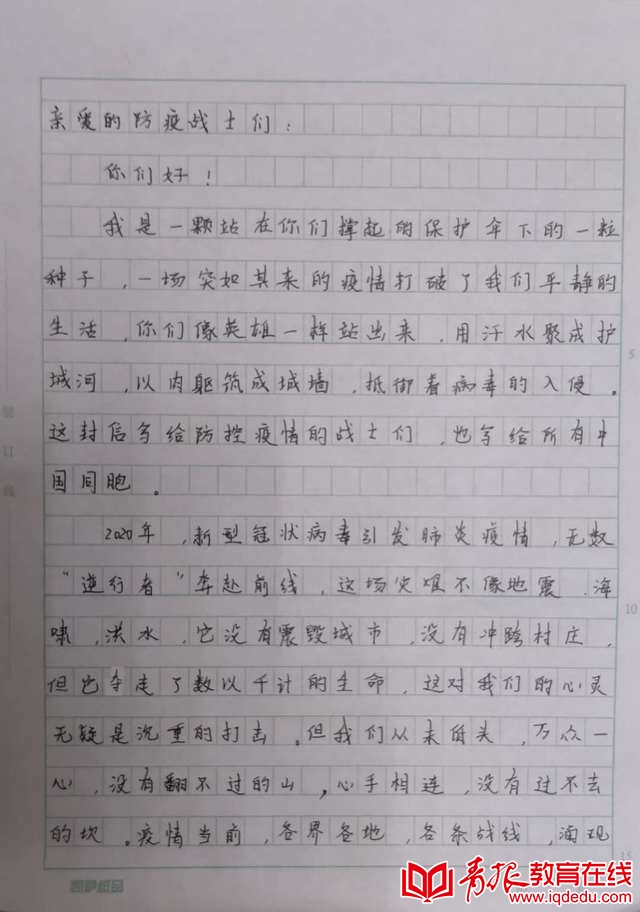 亲爱的防疫战士们：
你们好！
我是一颗站在你们撑起的保护伞下的一粒
种子，一场突如其来的疫情打破了我们平静的
生活，你们像英雄一样站出来，用汗水聚成护
城河，以肉躯筑成城墙，抵御着病毒的入侵。
这封信写给防控疫情的战士们，也写给所有中
国同胞。
2020年，新型冠状病毒引发肺炎疫情，无数
“逆行者”奔赴前线，这场灾难不像地震、海
啸，洪水，它没有震毁城市，没有冲跨村庄，
但它夺走了数以千计的生命，这对我们的心灵
无疑是沉重的打击。但我们从未低头，万众一
心，没有翻不过的山，心手相连，没有过不去
的坎。疫情当前，各界各地，各条战线，涌现
5
10
15
装订线
青报教育在线
www.iqdedu.com